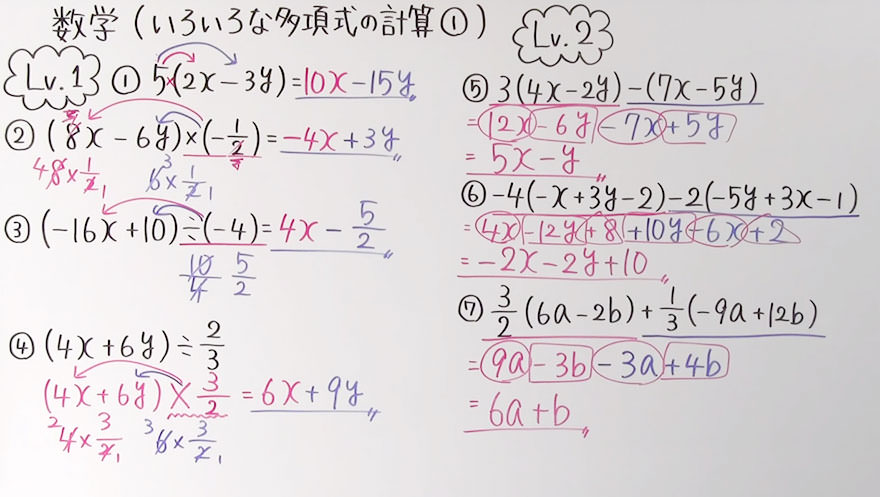 数学(いろいろな多項式の計算①)
Lv.1
① 5(2x-3y)=10x-15y
② (8x-6y)×(-1/2)=-4x+3y
4 8×1/2 1 3 6×1/2 1
③ (-16x+10)÷(-4)=4x-5/2
10/4 5/2
④ (4x+6y)÷2/3
(4x+6y)×3/2=6x+9y
2 4×3/2 1 3 6×3/2 1
Lv.2
⑤ 3(4x-2y)-(7x-5y)
=12x-6y-7x+5y
=5x-y
⑥ -4(-x+3y-2)-2(-5y+3x-1)
=4x-12y+8+10y-6x+2
=-2x-2y+10
⑦ 3/2(6a-2b)+1/3(-9a+12b)
=9a-3b-3a+4b
=6a+b